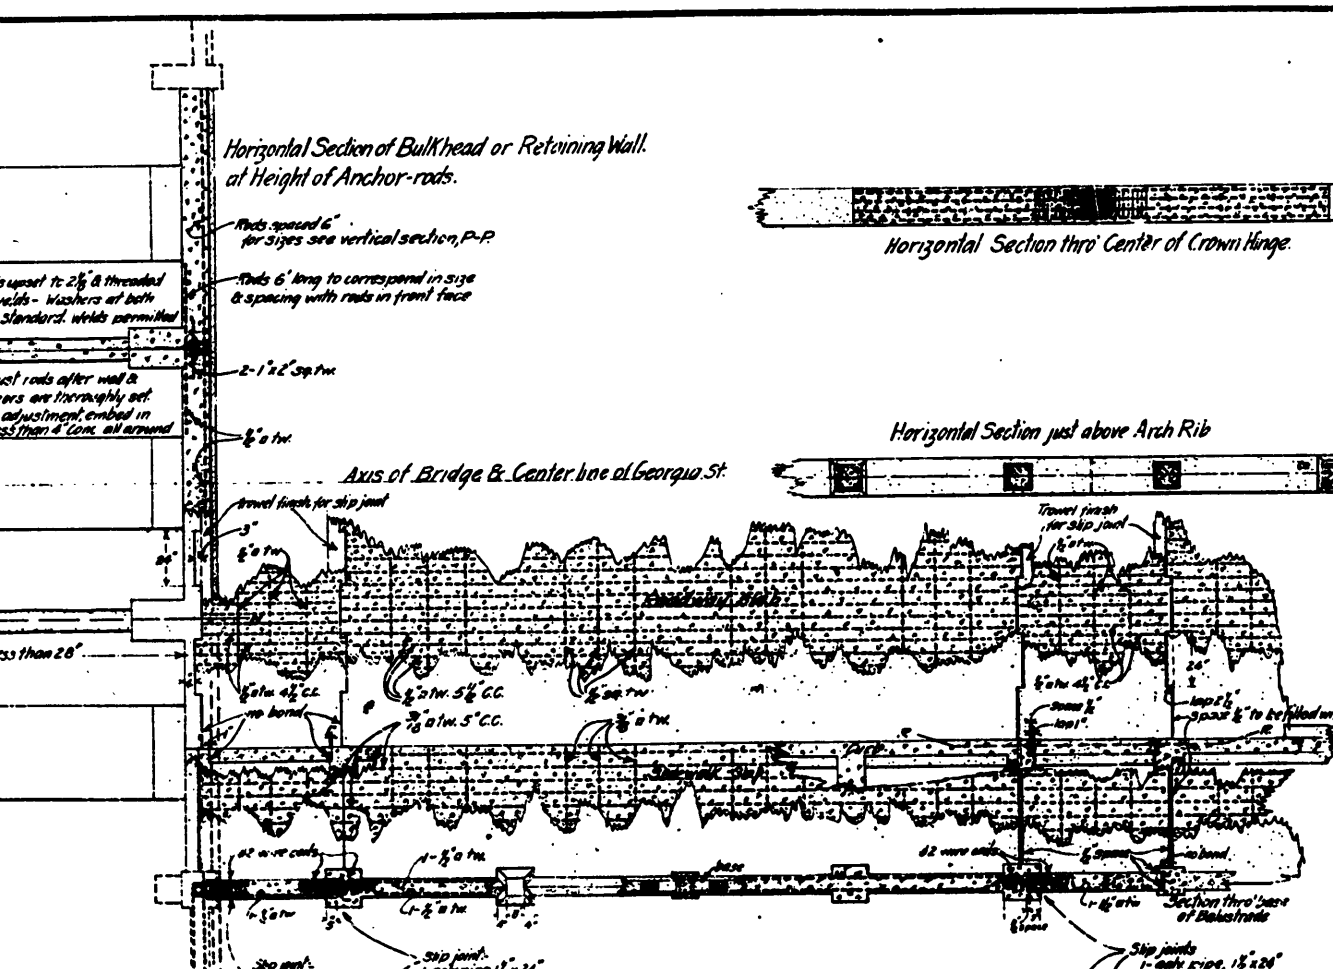 Horizontal Section of Bulkhead or Retaining Wall.
at Height of Anchor-rods.
Rods spaced 6"
for sizes see vertical section, P-P.
Rods 6' long to correspond in size
& spacing with rods in front face
upset to & threaded
welds - Washers at both
standard. Welds permitted
2-1"x2" sq. tw.
rods after wall &
are thoroughly set.
adjustment, embed in
than 4" Conc. all around
½" a tw.
Horizontal Section thro' Center of Crown Hinge.
Horizontal Section just above Arch Rib
Axis of Bridge & Center line of Georgia St.
trowel finish for slip joint
3"
½" a tw.
24"
Trowel finish
for slip joint
½" a tw.
Roadway Slab
less than 28"
½" a tw. 4½" C.C.
½" a tw. 5½" C.C.
½" sq. tw.
½" a tw. 4½" C.C.
24"
lap 2½"
no bond
a tw. 5" C.C.
a tw.
space ½"
lap 1"
space ½" to be filled
Curb
Sidewalk Slab
#2 wire ends
1-½" a tw.
base
#2 wire ends
½" space
no bond
a tw.
1-½" a tw.
3"
4" 8" 4"
½" space
1-½" a tw.
Section thro' base
of Balustrade
Slip joint-
Slip joint:-
Slip joints
1- galv. pipe, 1½"x26"